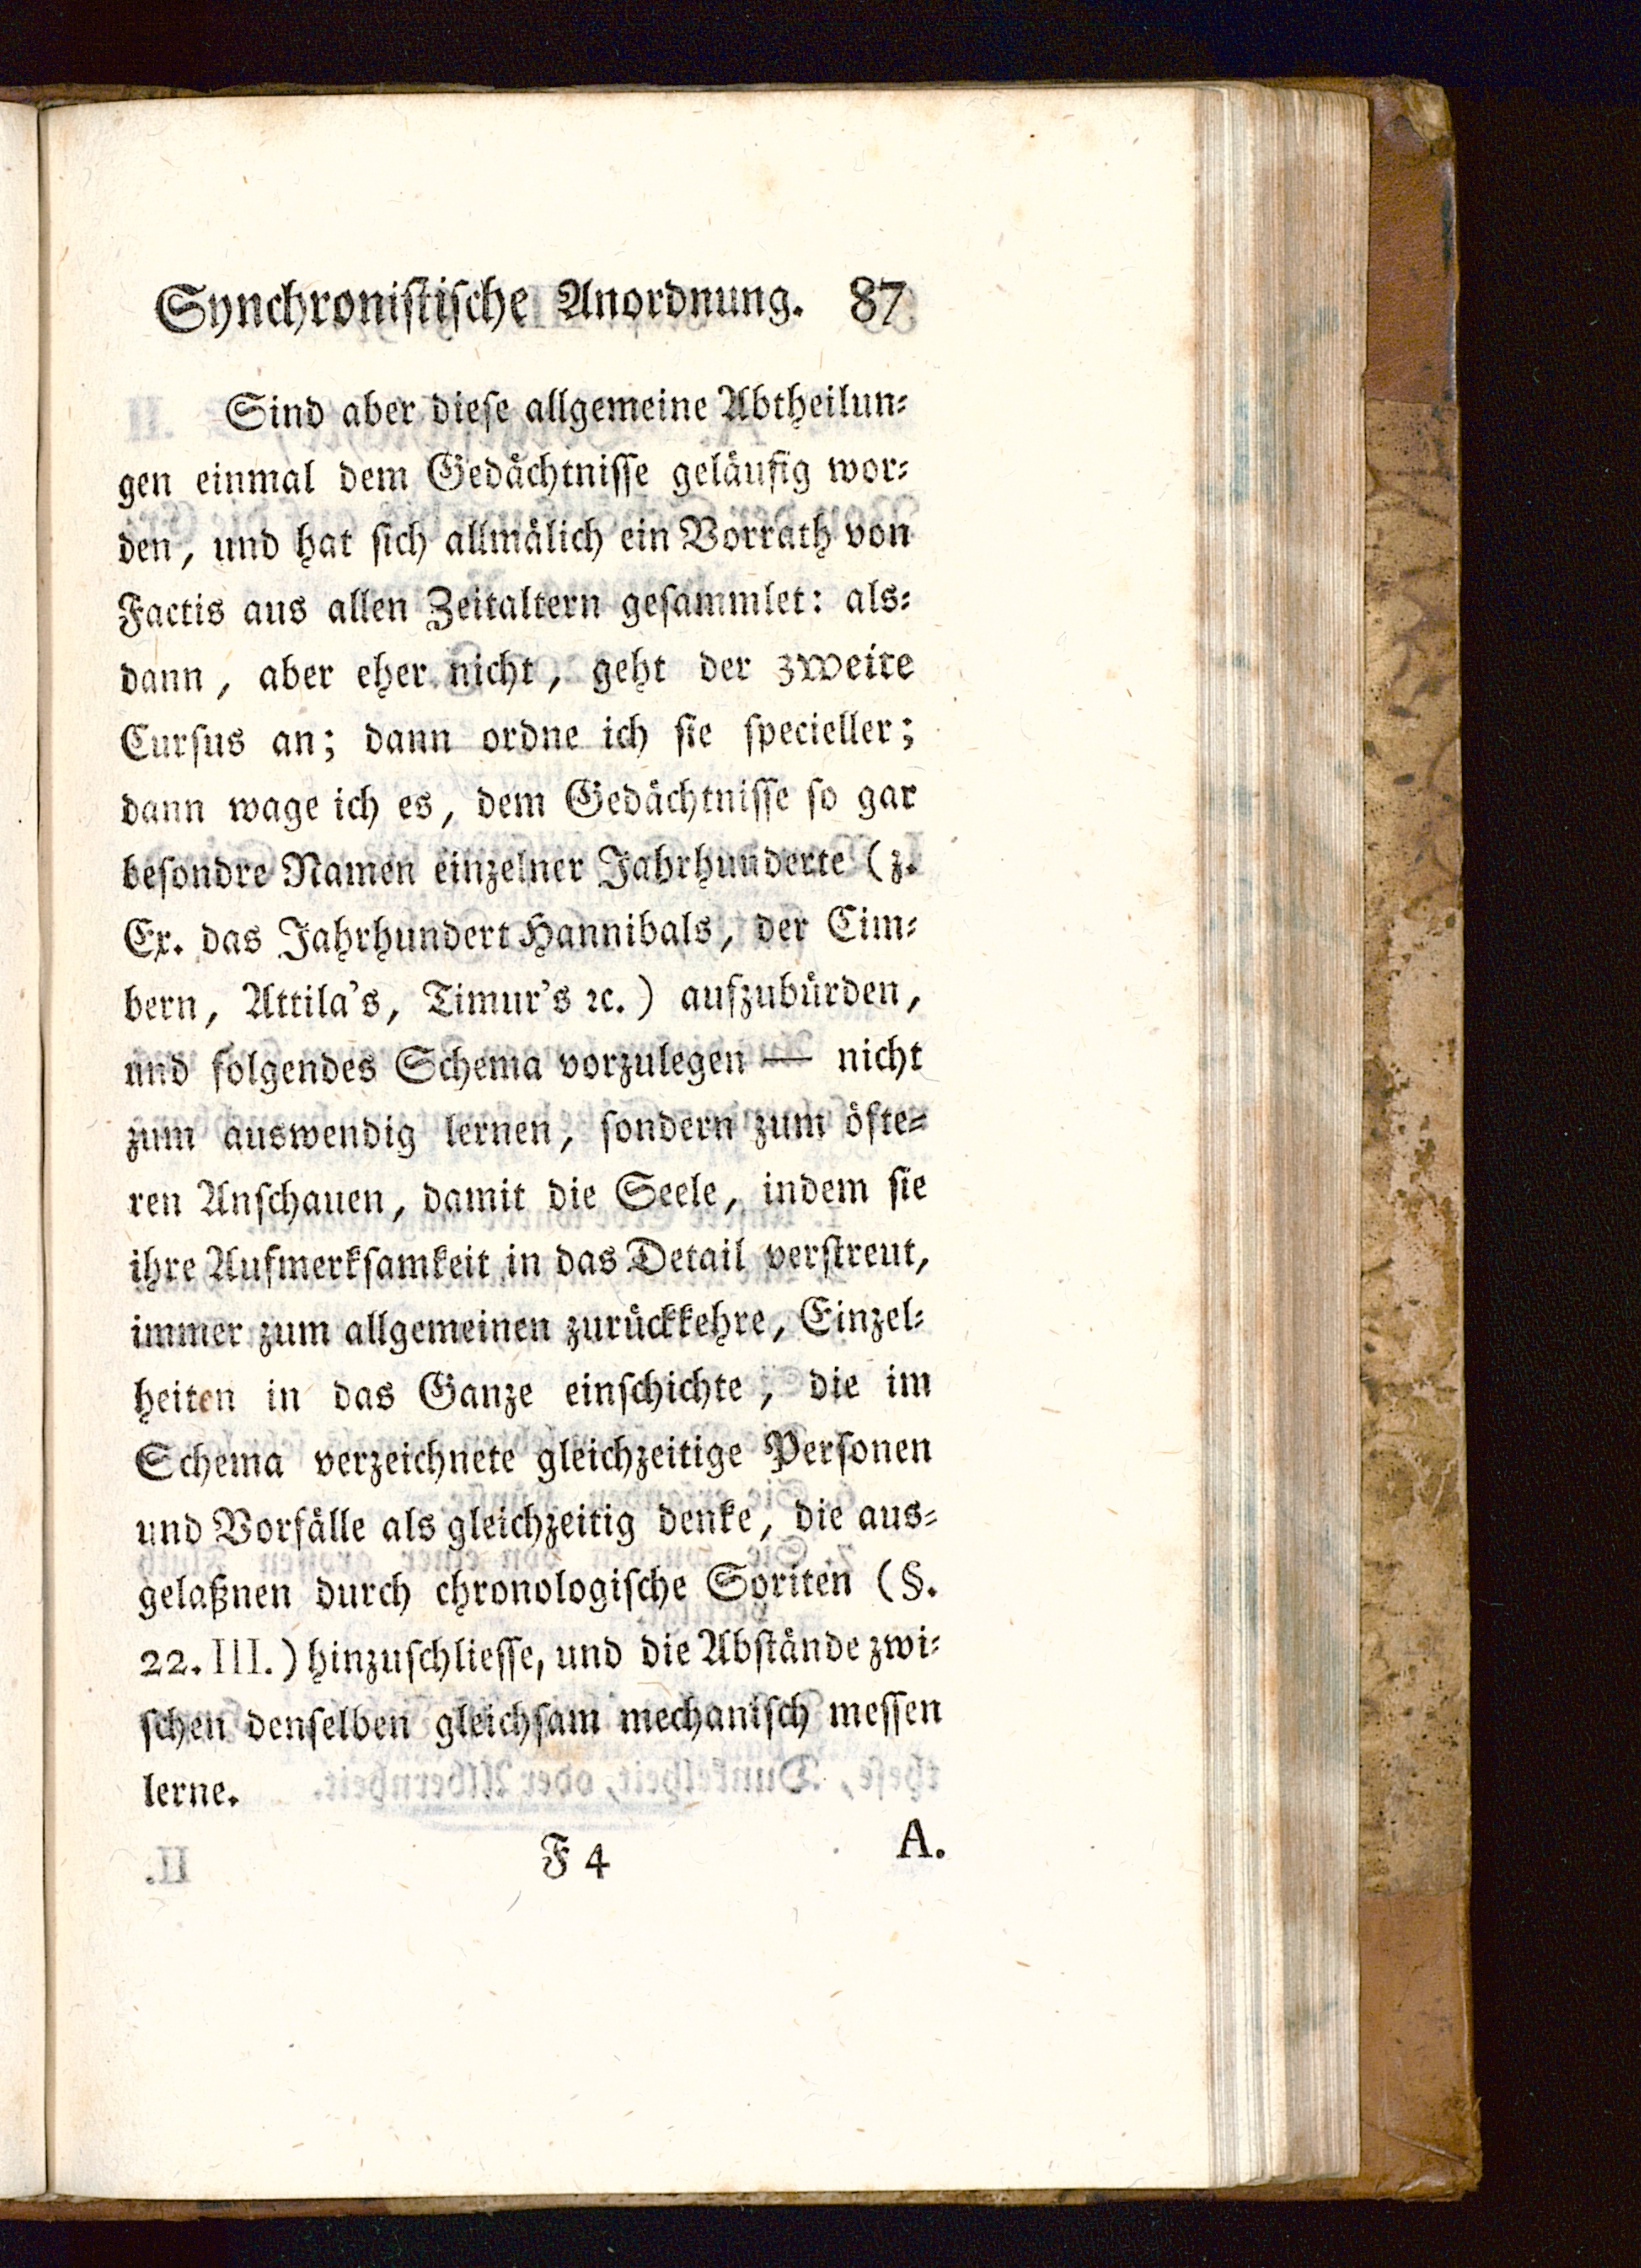 Synchronistische Anordnung. 87
Sind aber diese allgemeine Abtheilun-
gen einmal dem Gedächtnisse geläufig wor-
den, und hat sich allmälich ein Vorrath von
Factis aus allen Zeitaltern gesammlet: als-
dann, aber eher nicht, geht der zweite
Cursus an; dann ordne ich sie specieller;
dann wage ich es, dem Gedächtnisse so gar
besondre Namen einzelner Jahrhunderte (z.
Ex. das Jahrhundert Hannibals, der Cim-
bern, Attila's, Timur's ꝛc.) aufzubürden,
und folgendes Schema vorzulegen — nicht
zum auswendig lernen, sondern zum öfte-
ren Anschauen, damit die Seele, indem sie
ihre Aufmerksamkeit in das Detail verstreut,
immer zum allgemeinen zurückkehre, Einzel-
heiten in das Ganze einschichte, die im
Schema verzeichnete gleichzeitige Personen
und Vorfälle als gleichzeitig denke, die aus-
gelaßnen durch chronologische Soriten (§.
22. III.) hinzuschliesse, und die Abstände zwi-
schen denselben gleichsam mechanisch messen
lerne.
F 4 A.